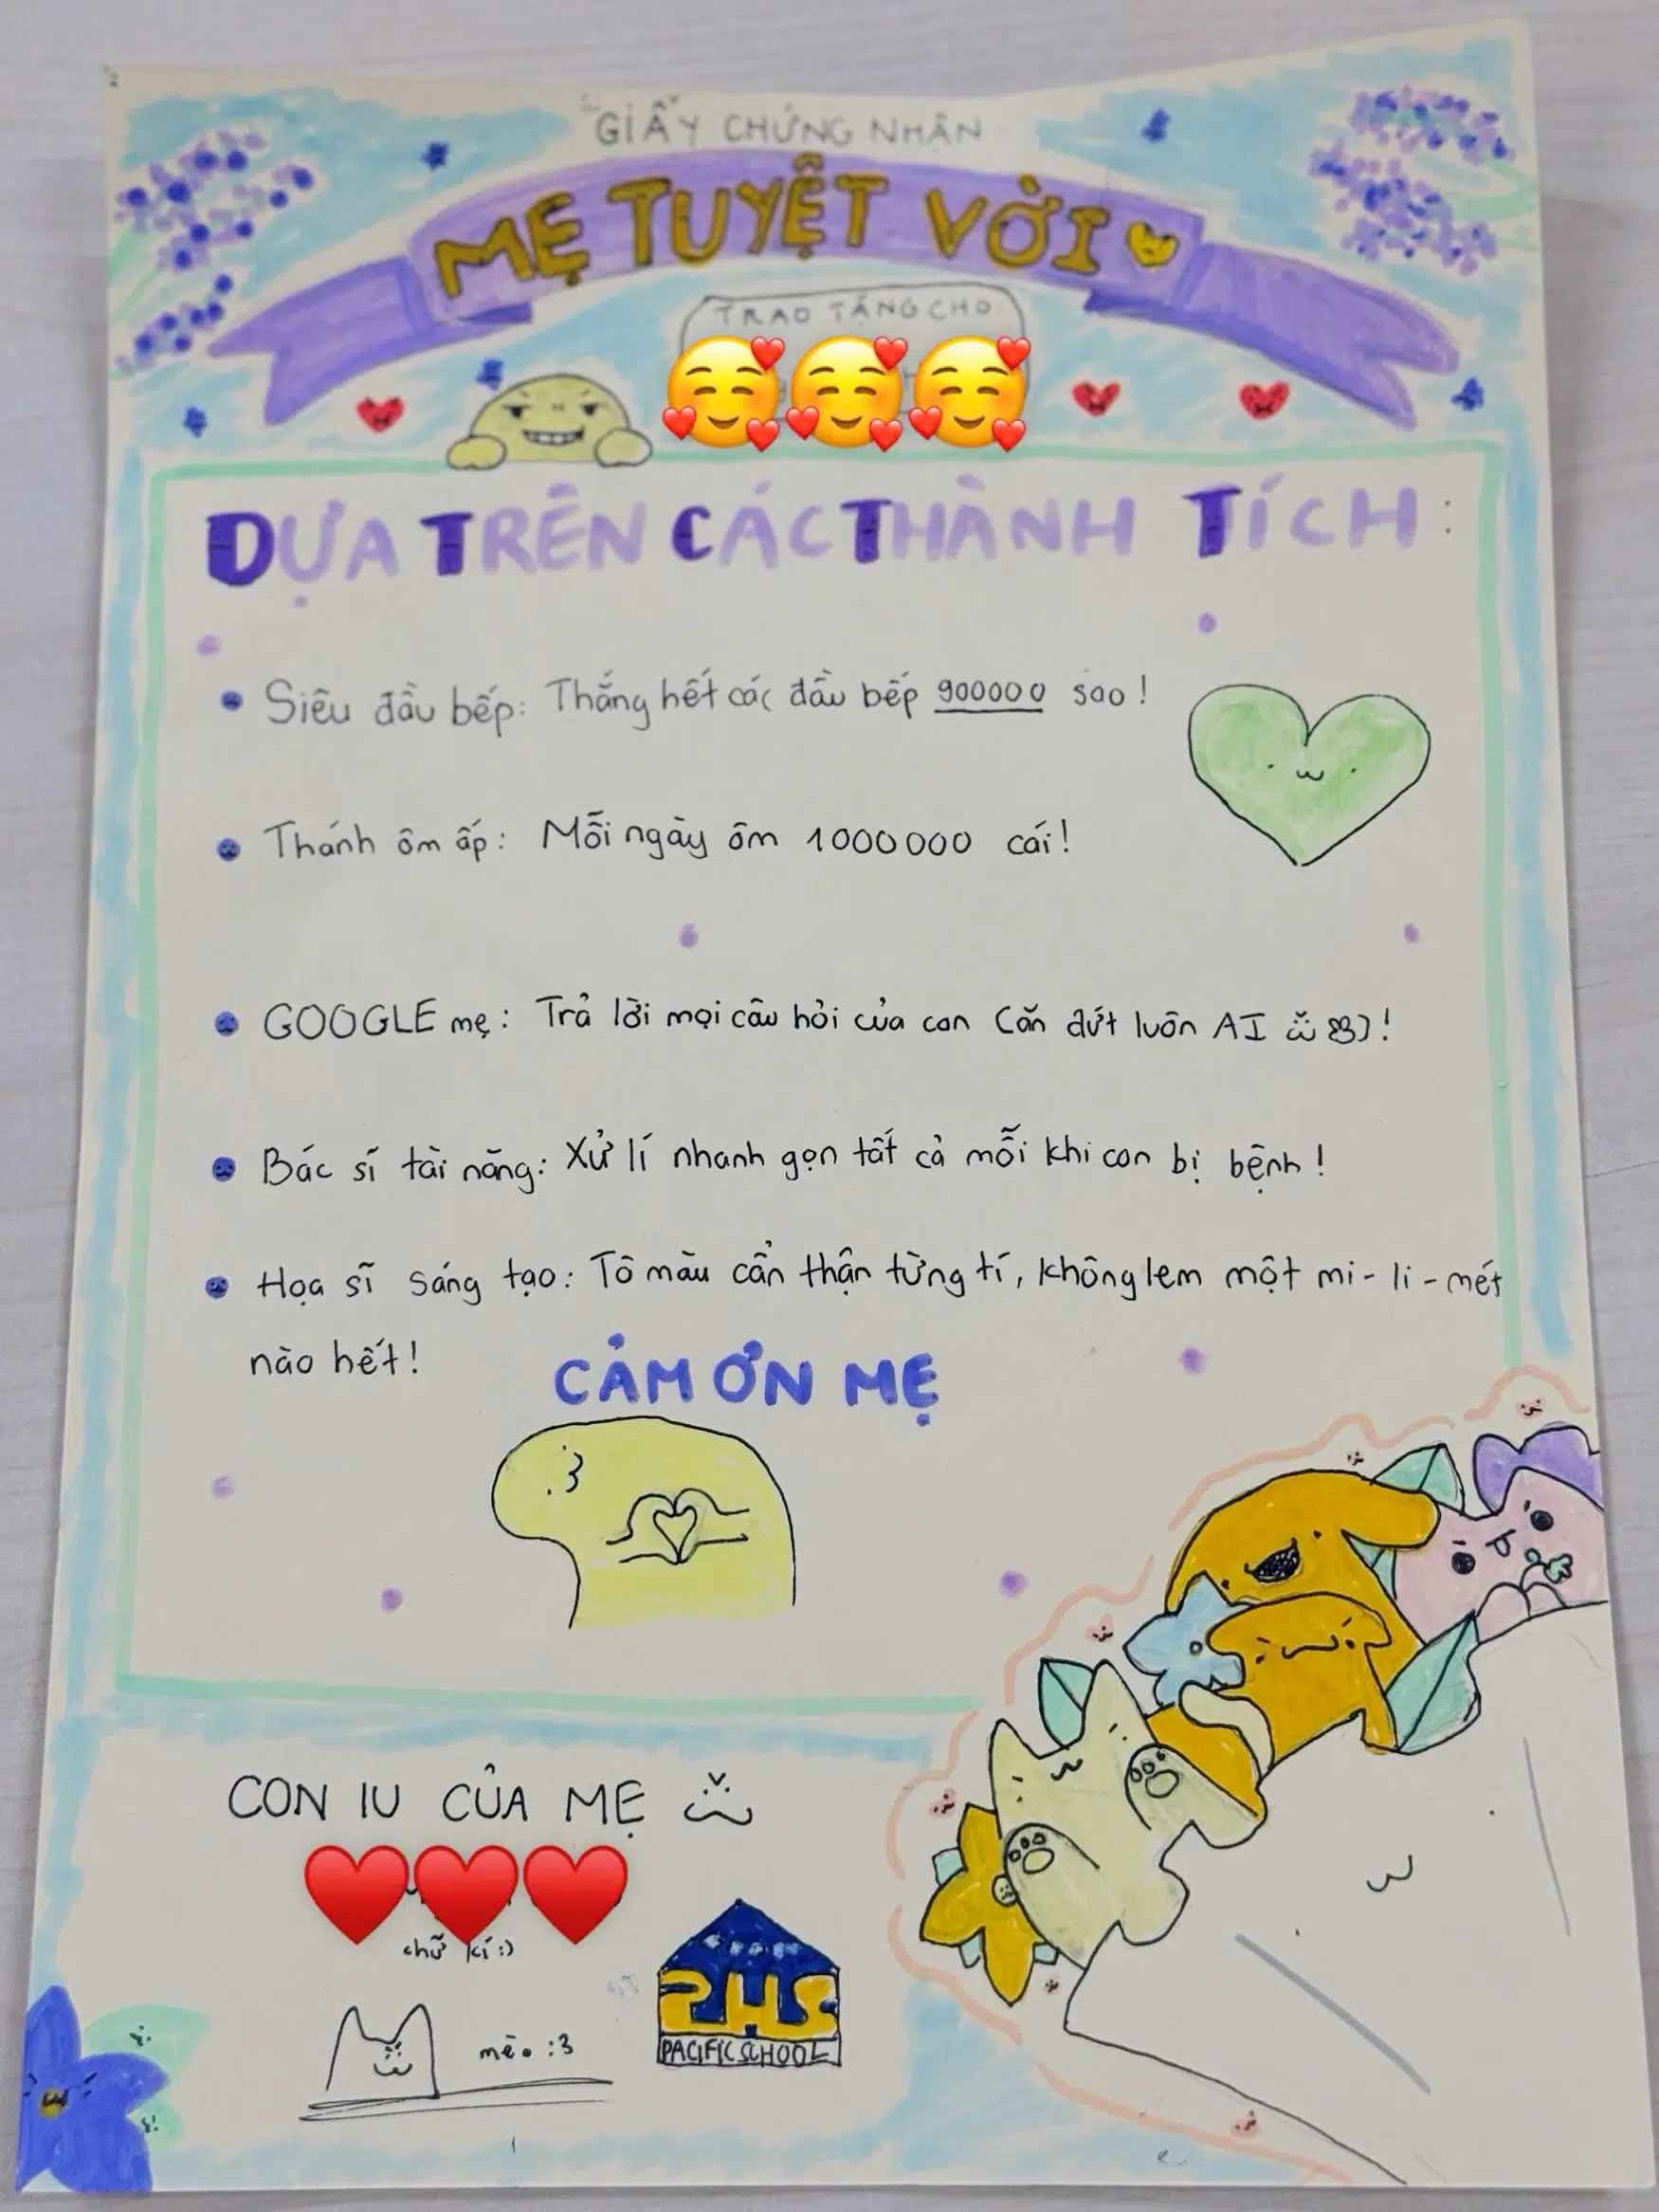 GIẤY CHỨNG NHẬN
MẸ TUYỆT VỜI
TRAO TẶNG CHO
DỰA TRÊN CÁC THÀNH TÍCH:
Siêu đầu bếp: Thắng hết các đầu bếp 900000 sao!
Thánh ôm ấp: Mỗi ngày ôm 1000000 cái!
GOOGLE mẹ: Trả lời mọi câu hỏi của con (ăn đứt luôn AI)!
Bác sí tài năng: Xử lí nhanh gọn tất cả mỗi khi con bị bệnh!
Họa sĩ sáng tạo: Tô màu cẩn thận từng tí, không lem một mi-li-mét
nào hết!
CẢM ƠN MẸ
CON IU CỦA MẸ
chữ kí:)
mèo :3
PHS
PACIFIC SCHOOL